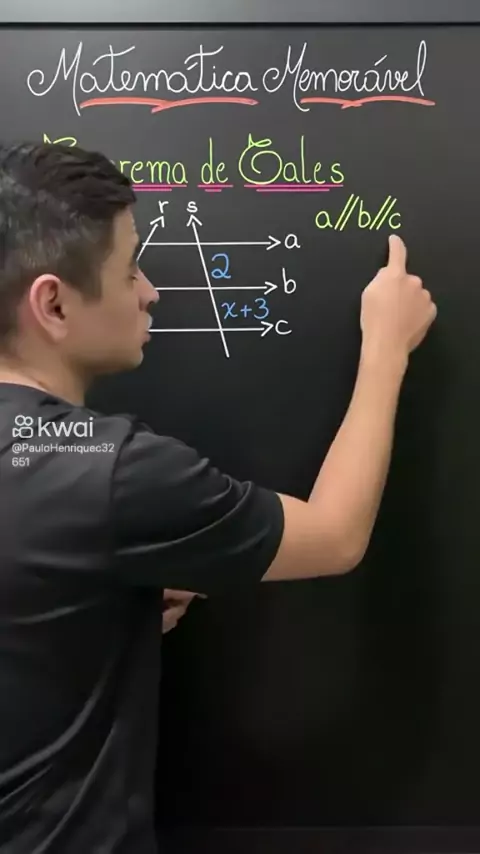 Matemática Memorável
rema de Tales
r s
a//b//c
a
2
b
x+3
c
kwai
@PauloHenriquec32
651